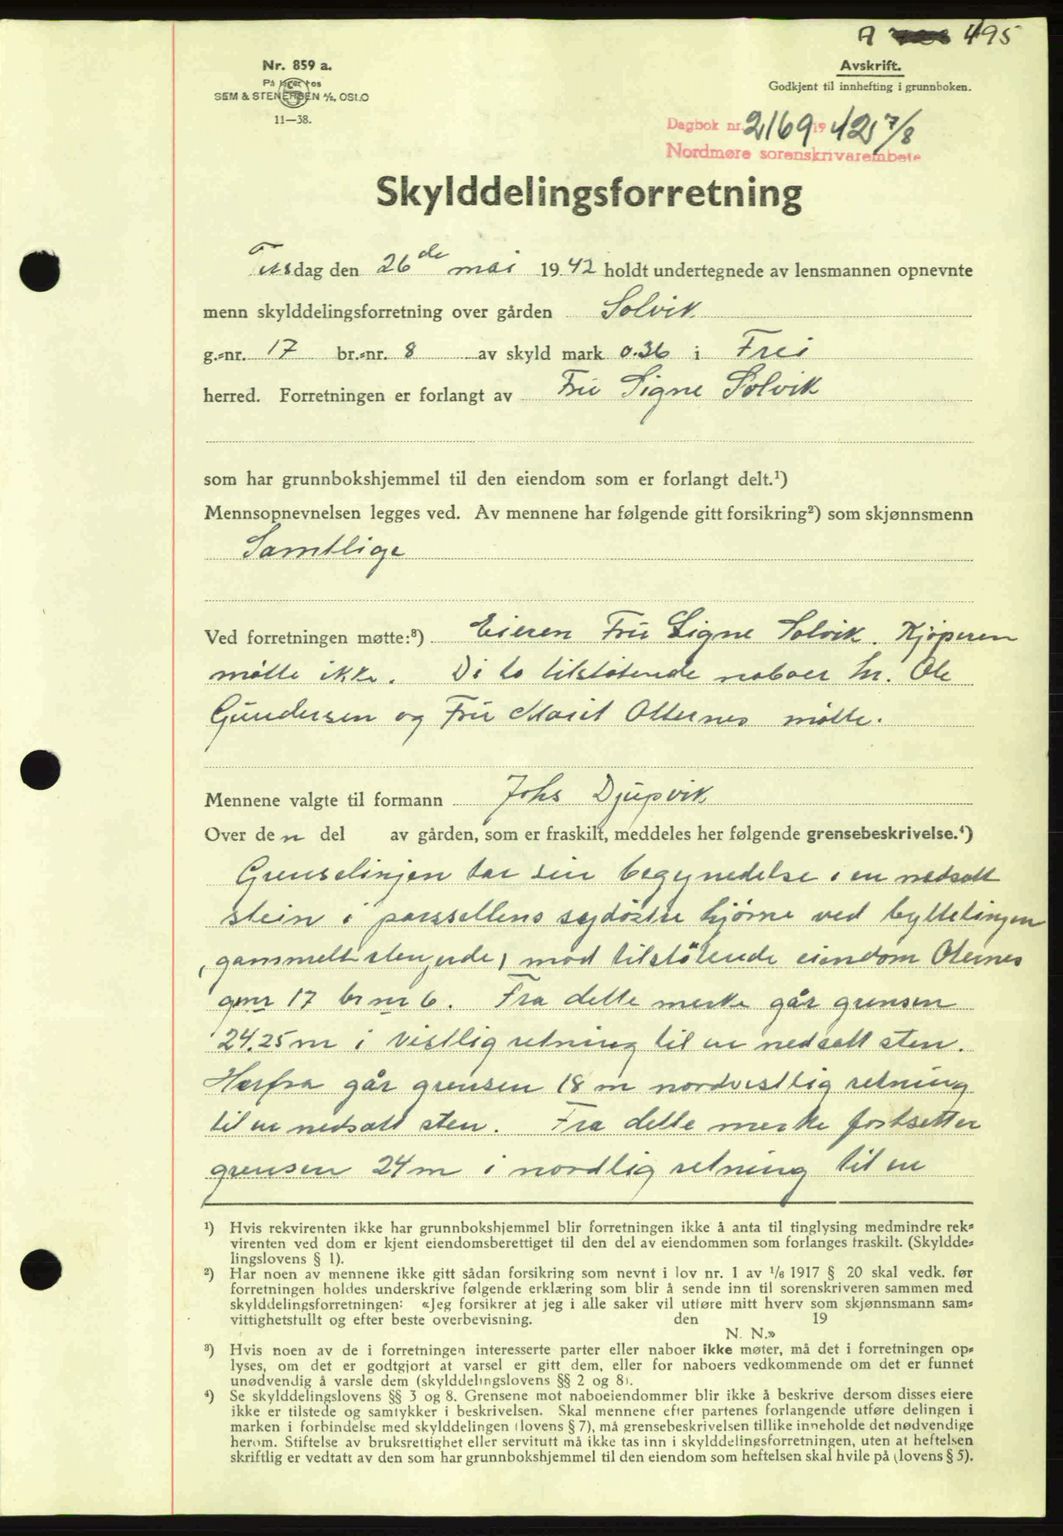 A 495
Nr. 859 a.
På lager hos
SEM & STENERSEN A/S, OSLO
11—38.
Avskrift.
Godkjent til innhefting i grunnboken.
Dagbok nr. 2169 19 42, 7/8
Nordmøre sorenskrivarembete
Skylddelingsforretning
Tirsdag den 26de mai 1942 holdt undertegnede av lensmannen opnevnte
menn skylddelingsforretning over gården Solvik
g.=nr. 17 br.=nr. 8 av skyld mark 0.36 i Frei
herred. Forretningen er forlangt av Fru Signe Solvik
som har grunnbokshjemmel til den eiendom som er forlangt delt.¹)
Mennsopnevnelsen legges ved. Av mennene har følgende gitt forsikring²) som skjønnsmenn
Samtlige
Ved forretningen møtte:³) Eieren Fru Signe Solvik. Kjøperen
møtte ikke. Di to tilstøtende naboer hr. Ole
Gundersen og Fru Marit Otternes møtte.
Mennene valgte til formann Johs Djupvik
Over den del av gården, som er fraskilt, meddeles her følgende grensebeskrivelse.⁴)
Grenselinjen tar sin begynedelse i en nedsatt
stein i parsellens sydöstre hjörne ved byttelingen
(gammelt stengjerde) mod tilstötende eiendom Oternes
gnr 17 br nr 6. Fra dette merke går grensen
24.25 m i vestlig retning til en nedsatt sten.
Herfra går grensen 18 m nordvestlig retning
til en nedsatt sten. Fra dette merke fortsetter
grensen 24 m i nordlig retning til en
¹) Hvis rekvirenten ikke har grunnbokshjemmel blir forretningen ikke å anta til tinglysing medmindre rek=
virenten ved dom er kjent eiendomsberettiget til den del av eiendommen som forlanges fraskilt. (Skyldde=
lingslovens § 1).
²) Har noen av mennene ikke gitt sådan forsikring som nevnt i lov nr. 1 av 1/6 1917 § 20 skal vedk. før
forretningen holdes underskrive følgende erklæring som blir å sende inn til sorenskriveren sammen med
skylddelingsforretningen: «Jeg forsikrer at jeg i alle saker vil utføre mitt hverv som skjønnsmann sam=
vittighetsfullt og efter beste overbevisning. den 19
N. N.»
³) Hvis noen av de i forretningen interesserte parter eller naboer ikke møter, må det i forretningen op=
lyses, om det er godtgjort at varsel er gitt dem, eller for naboers vedkommende om det er funnet
unødvendig å varsle dem (skylddelingslovens §§ 2 og 8).
⁴) Se skylddelingslovens §§ 3 og 8. Grensene mot naboeiendommer blir ikke å beskrive dersom disses eiere
ikke er tilstede og samtykker i beskrivelsen. Skal mennene efter partenes forlangende utføre delingen i
marken i forbindelse med skylddelingen (lovens § 7), må grensebeskrivelsen tillike inneholde det nødvendige
herom. Stiftelse av bruksrettighet eller servitutt må ikke tas inn i skylddelingsforretningen, uten at heftelsen
skriftlig er vedtatt av den som har grunnbokshjemmel til den eiendom som heftelsen skal hvile på (lovens § 5).